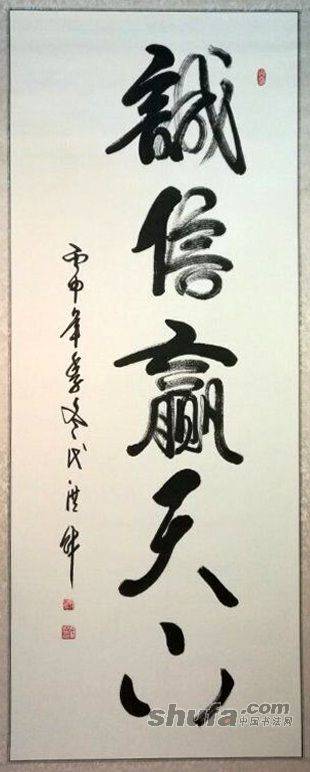 誠信贏天下
丙申年季冬代洪華
shufa.com
中国书法网